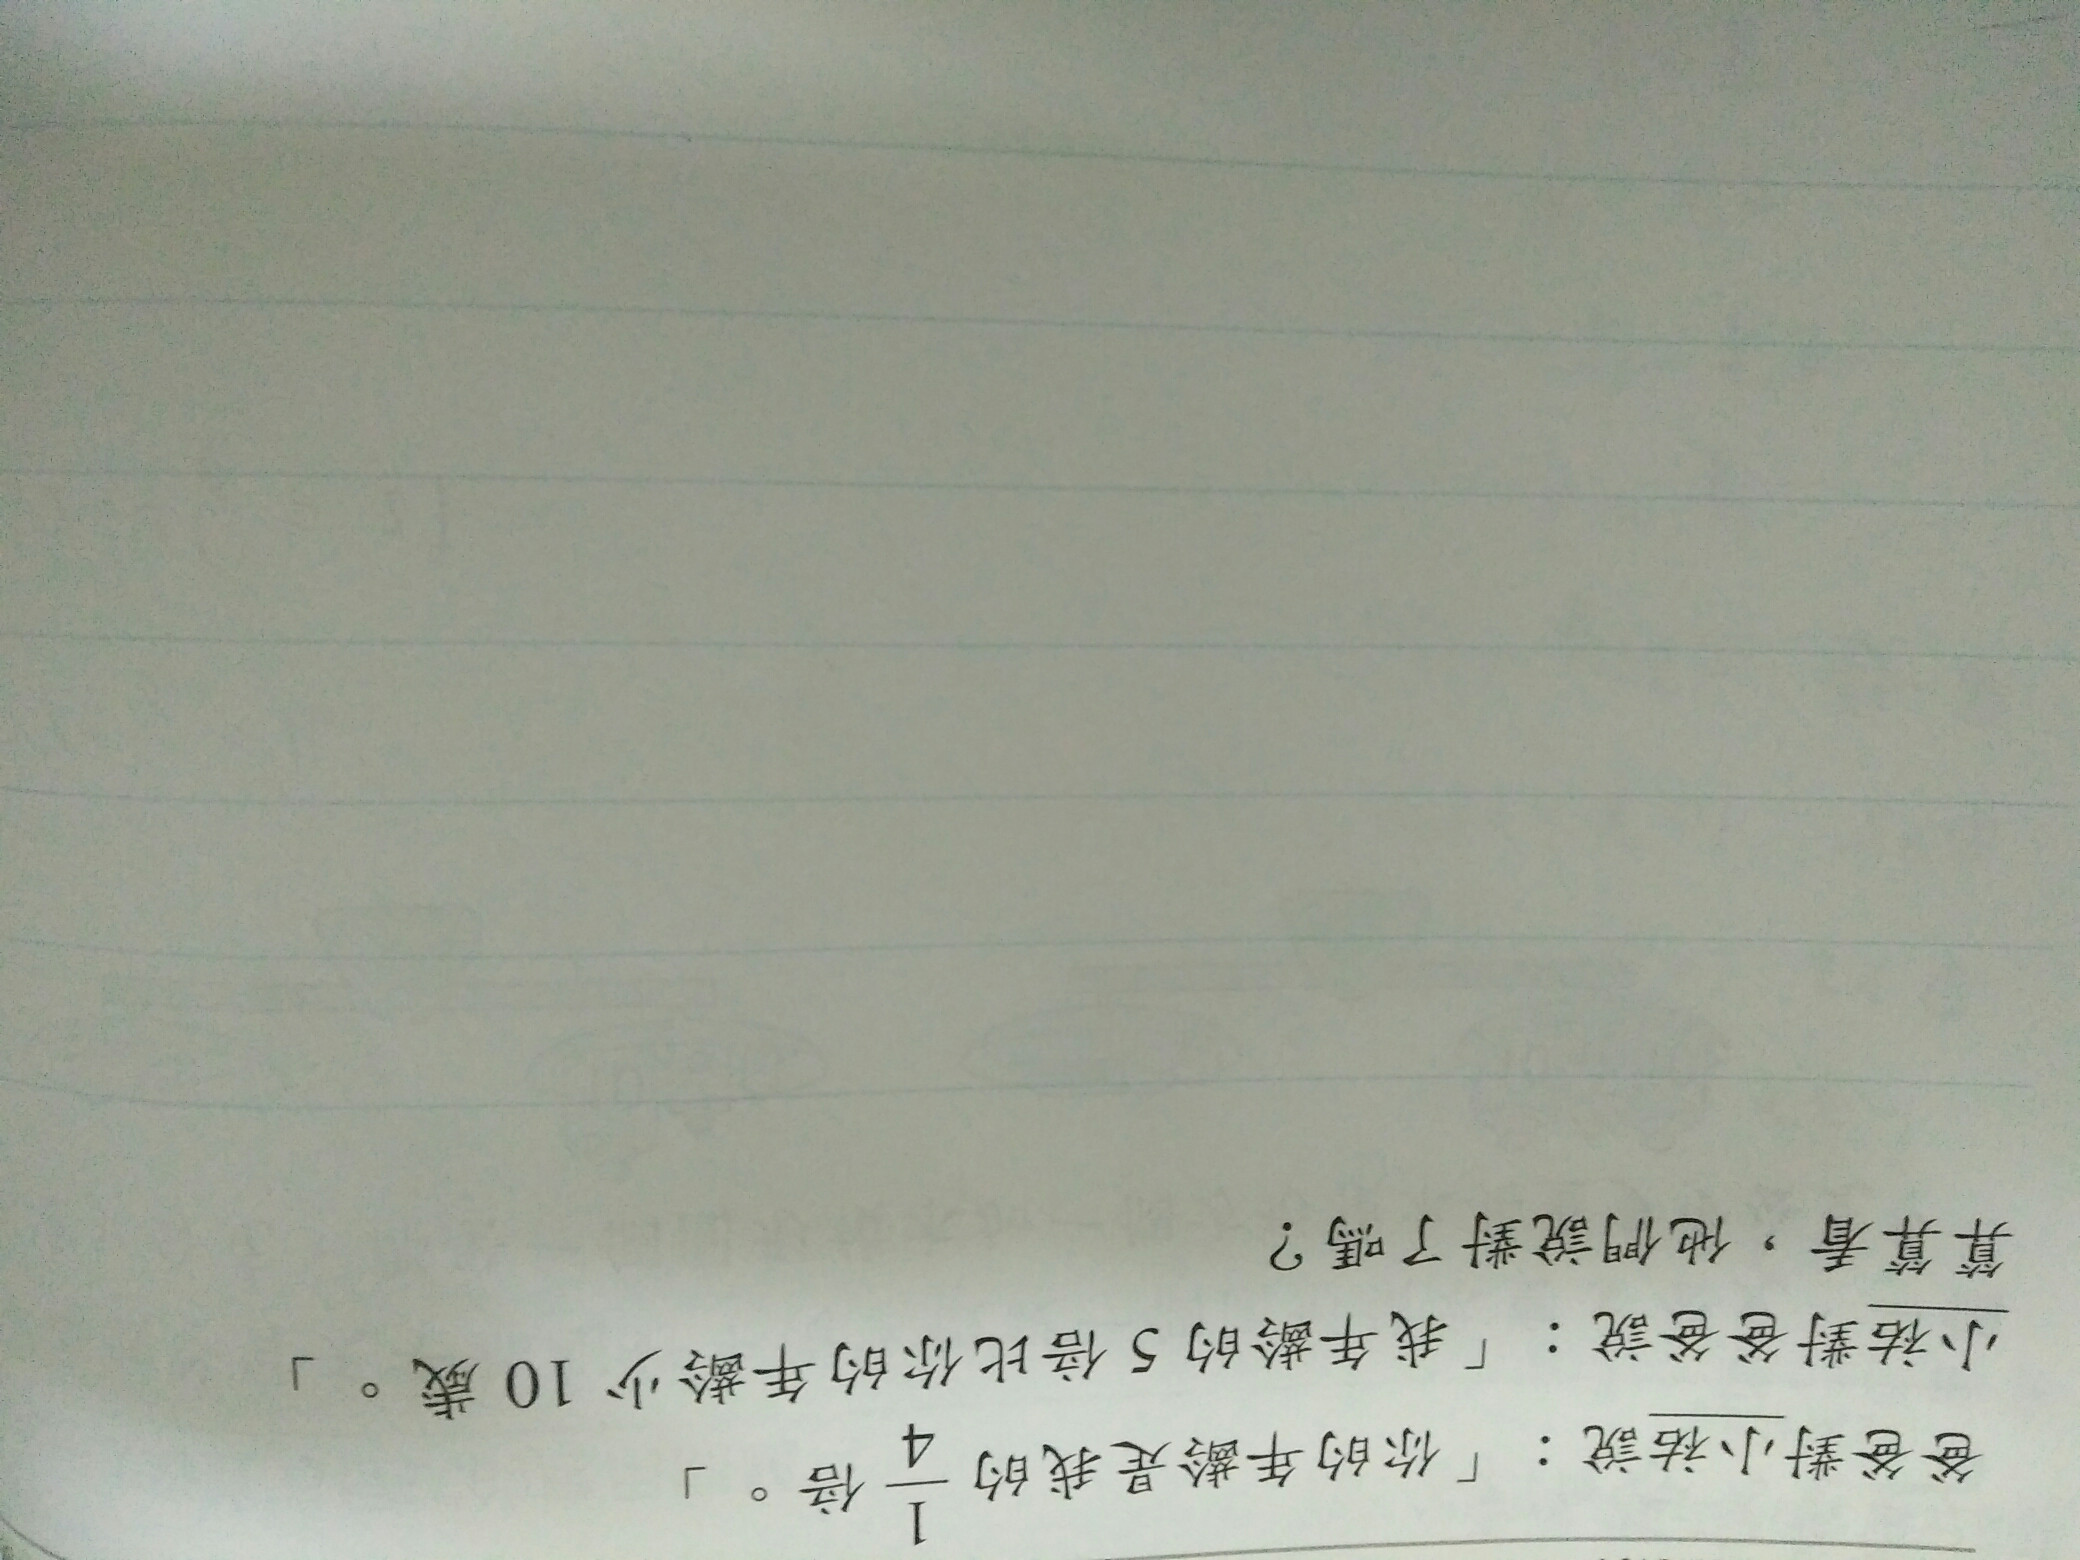 爸爸對小祐說：「你的年齡是我的 1/4 倍。」
小祐對爸爸說：「我年齡的 5 倍比你的年齡少 10 歲。」
算算看，他們說對了嗎？